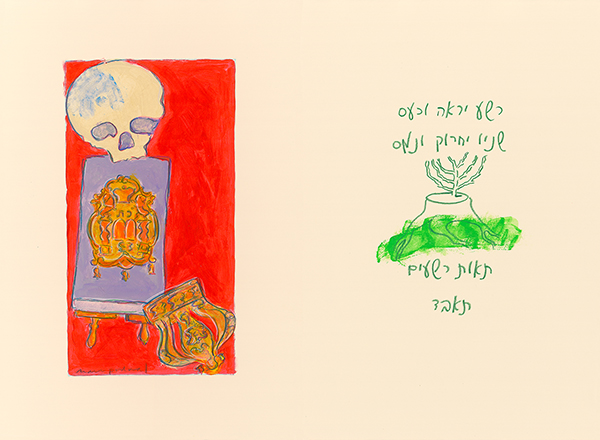 רשע יראה וכעס
שניו יחרוק ונמס
תאות רשעים
תאבד